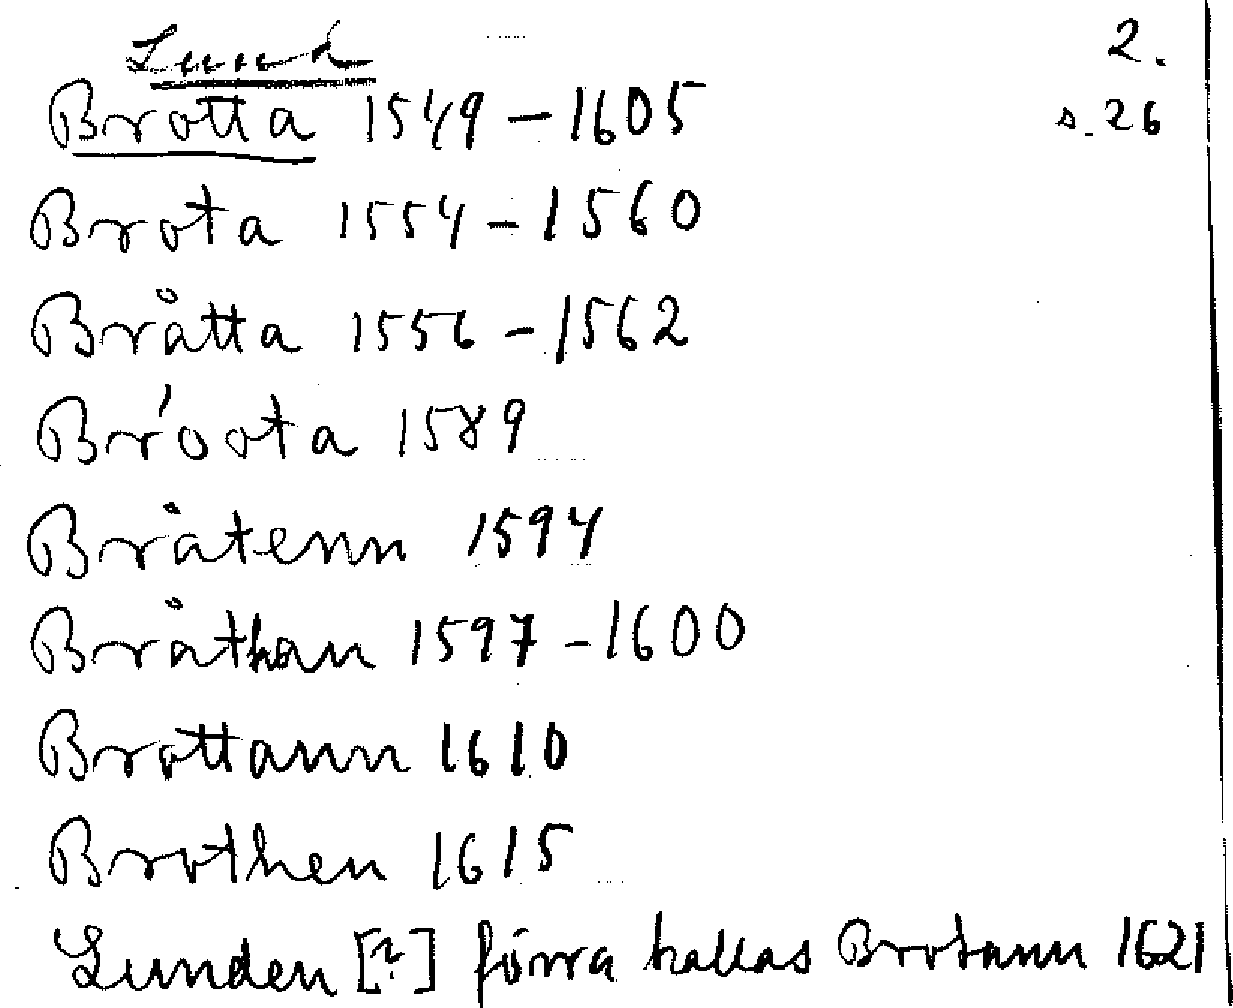 Lund 2.
Brotta 1549-1605 s. 26
Brota 1554-1560
Bråtta 1556-1562
Broota 1589
Bråtenn 1594
Bråthan 1597-1600
Brottann 1610
Brothen 1615
Lunden [?] förra kallas Brotann 1621